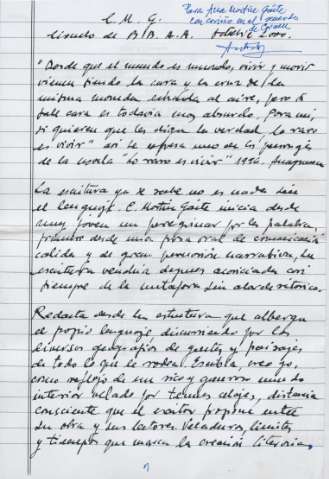 C. M. G.
Para Ana Martín Gaite
con cariño en el recuerdo
Círculo de BB. A. A. Octubre 2000.
"Desde que el mundo es mundo, vivir y morir
vienen siendo la cara y la cruz de una
misma moneda echada al aire, pero si
sale cara es todavía más absurdo. Para mí,
si quieren que les diga la verdad, lo raro
es vivir" así se expresa uno de los personajes
de la novela "Lo raro es vivir" 1996. Anagrama
La escritura ya se sabe no es nada sin
el lenguaje. C. Martín Gaite inicia desde
muy joven un peregrinar por la palabra,
desde una prosa oral de comunicación
cálida y de gran precisión narrativa, la
escritura vendría después acompañada casi
siempre de la metáfora sin alardes retóricos.
Redacta desde la estructura que alberga
el propio lenguaje, discurriendo por los
diversos geografías de gentes y paisajes
de todo lo que le rodea. Escribía, creo yo,
como reflejo de un rico y generoso mundo
interior velado por tenues celajes, distancia
consciente que el escritor propone entre
su obra y sus lectores. Veladuras, límites
y tiempos que marca la creación literaria,
1